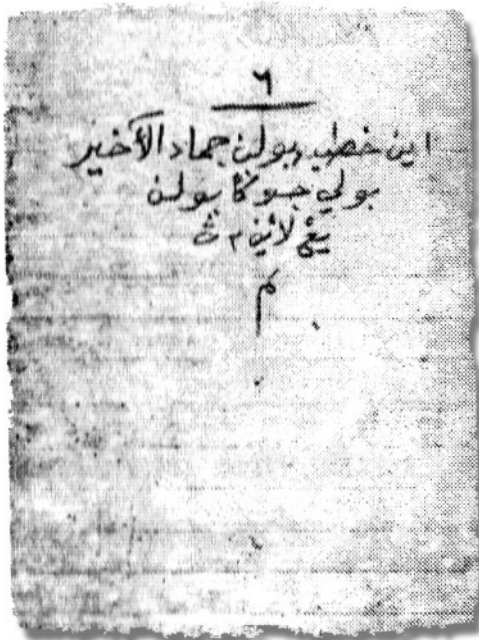 ٦
اين خطبه بولن جماد الأخير
بولي جو ݢا بولن
يڠ لائين٢ ڽ
م